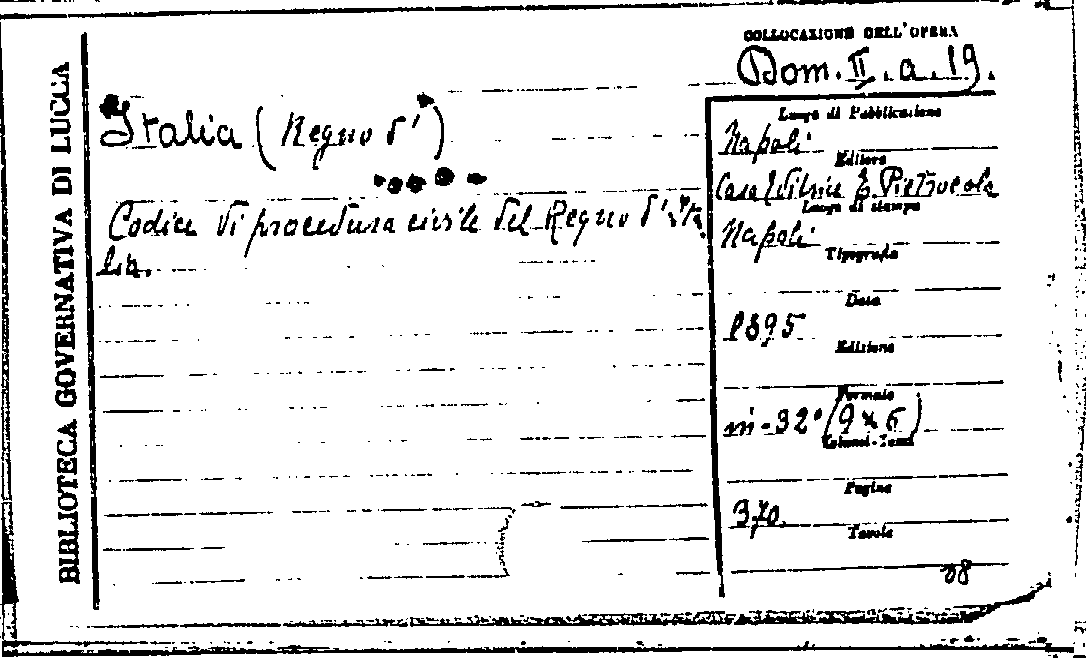 BIBLIOTECA GOVERNATIVA DI LUCCA
COLLOCAZIONE DELL'OPERA
Dom. II. a. 19.
Italia (Regno d')
Codice di procedura civile del Regno d'Ita
lia.
Luogo di Pubblicazione
Napoli
Editore
Casa Editrice E. Pietrocola
Luogo di stampa
Napoli
Tipografia
Data
1895
Edizione
Formato
in-32° (9 x 6)
Volumi-Tomi
Pagine
370.
Tavole